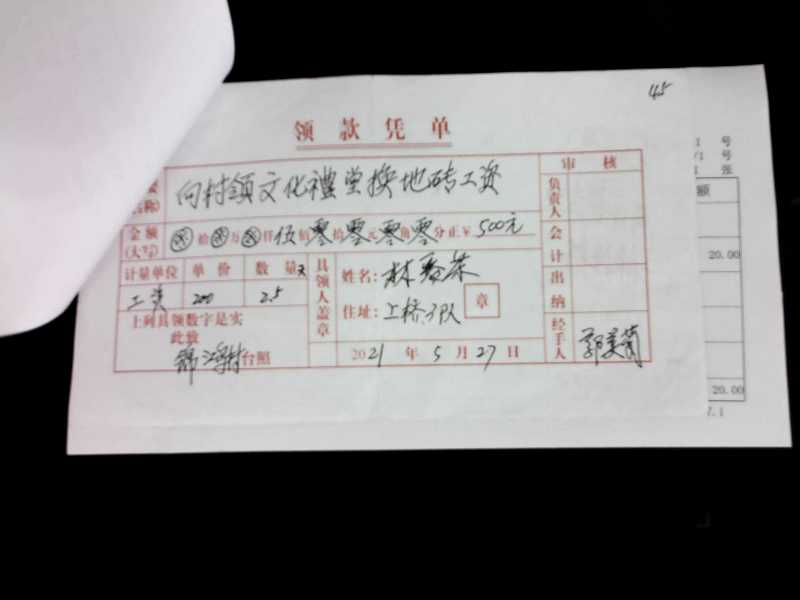 45
领款凭单
向村领文化禮堂换地砖工资
审 核
金额
(大写)
⊗拾⊗万⊗仟伍佰零拾零元零角零分正¥500元
计量单位 单价 数量天
工资 200 2.5
上列具领数字是实
此致
锦鸿村台照
具领人盖章
姓名:林
住址:上桥3队
章
2021年5月27日
负责人
会计
出纳
经手人
郭美
号
号
张
额
20.00
20.00
7.1